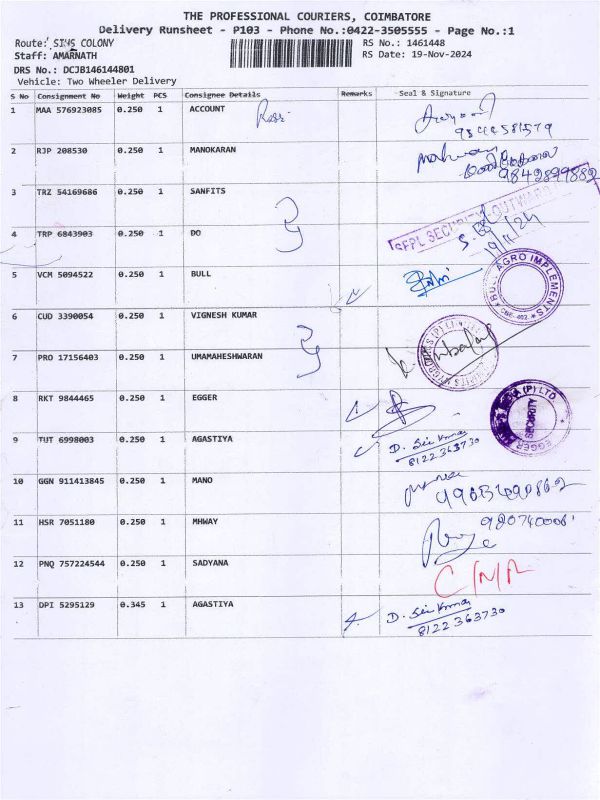 THE PROFESSIONAL COURIERS, COIMBATORE
Delivery Runsheet - P103 - Phone No.:0422-3505555 - Page No.:1
Route: SIHS COLONY
RS No.: 1461448
Staff: AMARNATH
RS Date: 19-Nov-2024
DRS No.: DCJB146144801
Vehicle: Two Wheeler Delivery
S No Consignment No Weight PCS Consignee Details Remarks Seal & Signature
1 MAA 576923085 0.250 1 ACCOUNT
2 RJP 208530 0.250 1 MANOKARAN
9842899882
3 TRZ 54169686 0.250 1 SANFITS
SFPL SECURITY OUTWARD
4 TRP 6843903 0.250 1 DO
19/11/24
5 VCM 5094522 0.250 1 BULL
BULL AGRO IMPLEMENTS
CBE-402.
6 CUD 3390054 0.250 1 VIGNESH KUMAR
7 PRO 17156403 0.250 1 UMAMAHESHWARAN
8 RKT 9844465 0.250 1 EGGER
(P) LTD
EGGER
SECURITY
9 TUT 6998003 0.250 1 AGASTIYA D. Sri Kumar
8122363730
10 GGN 911413845 0.250 1 MANO
11 HSR 7051180 0.250 1 MHWAY
12 PNQ 757224544 0.250 1 SADYANA C/N/R
13 DPI 5295129 0.345 1 AGASTIYA D. Sri Kumar
8122363730